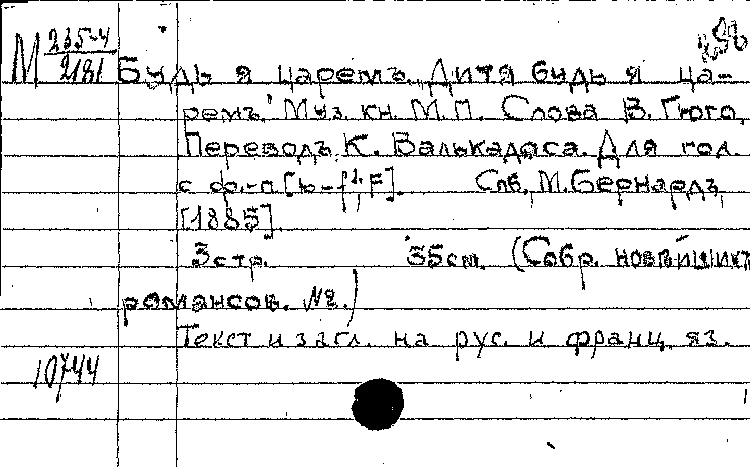 М 235-4
2181
Будь я царемъ. „Дитя будь я ца-
ремъ." Муз. кн. М.П. Слова В. Гюго.
Переводъ К. Валькадоса. Для гол.
с ф.-п. [b-f¹, F]. Спб, М. Бернардъ,
[1885].
3 стр. 35 см. (Собр. новѣйших
романсов. №2.)
Текст и загл. на рус. и франц. яз.
10744